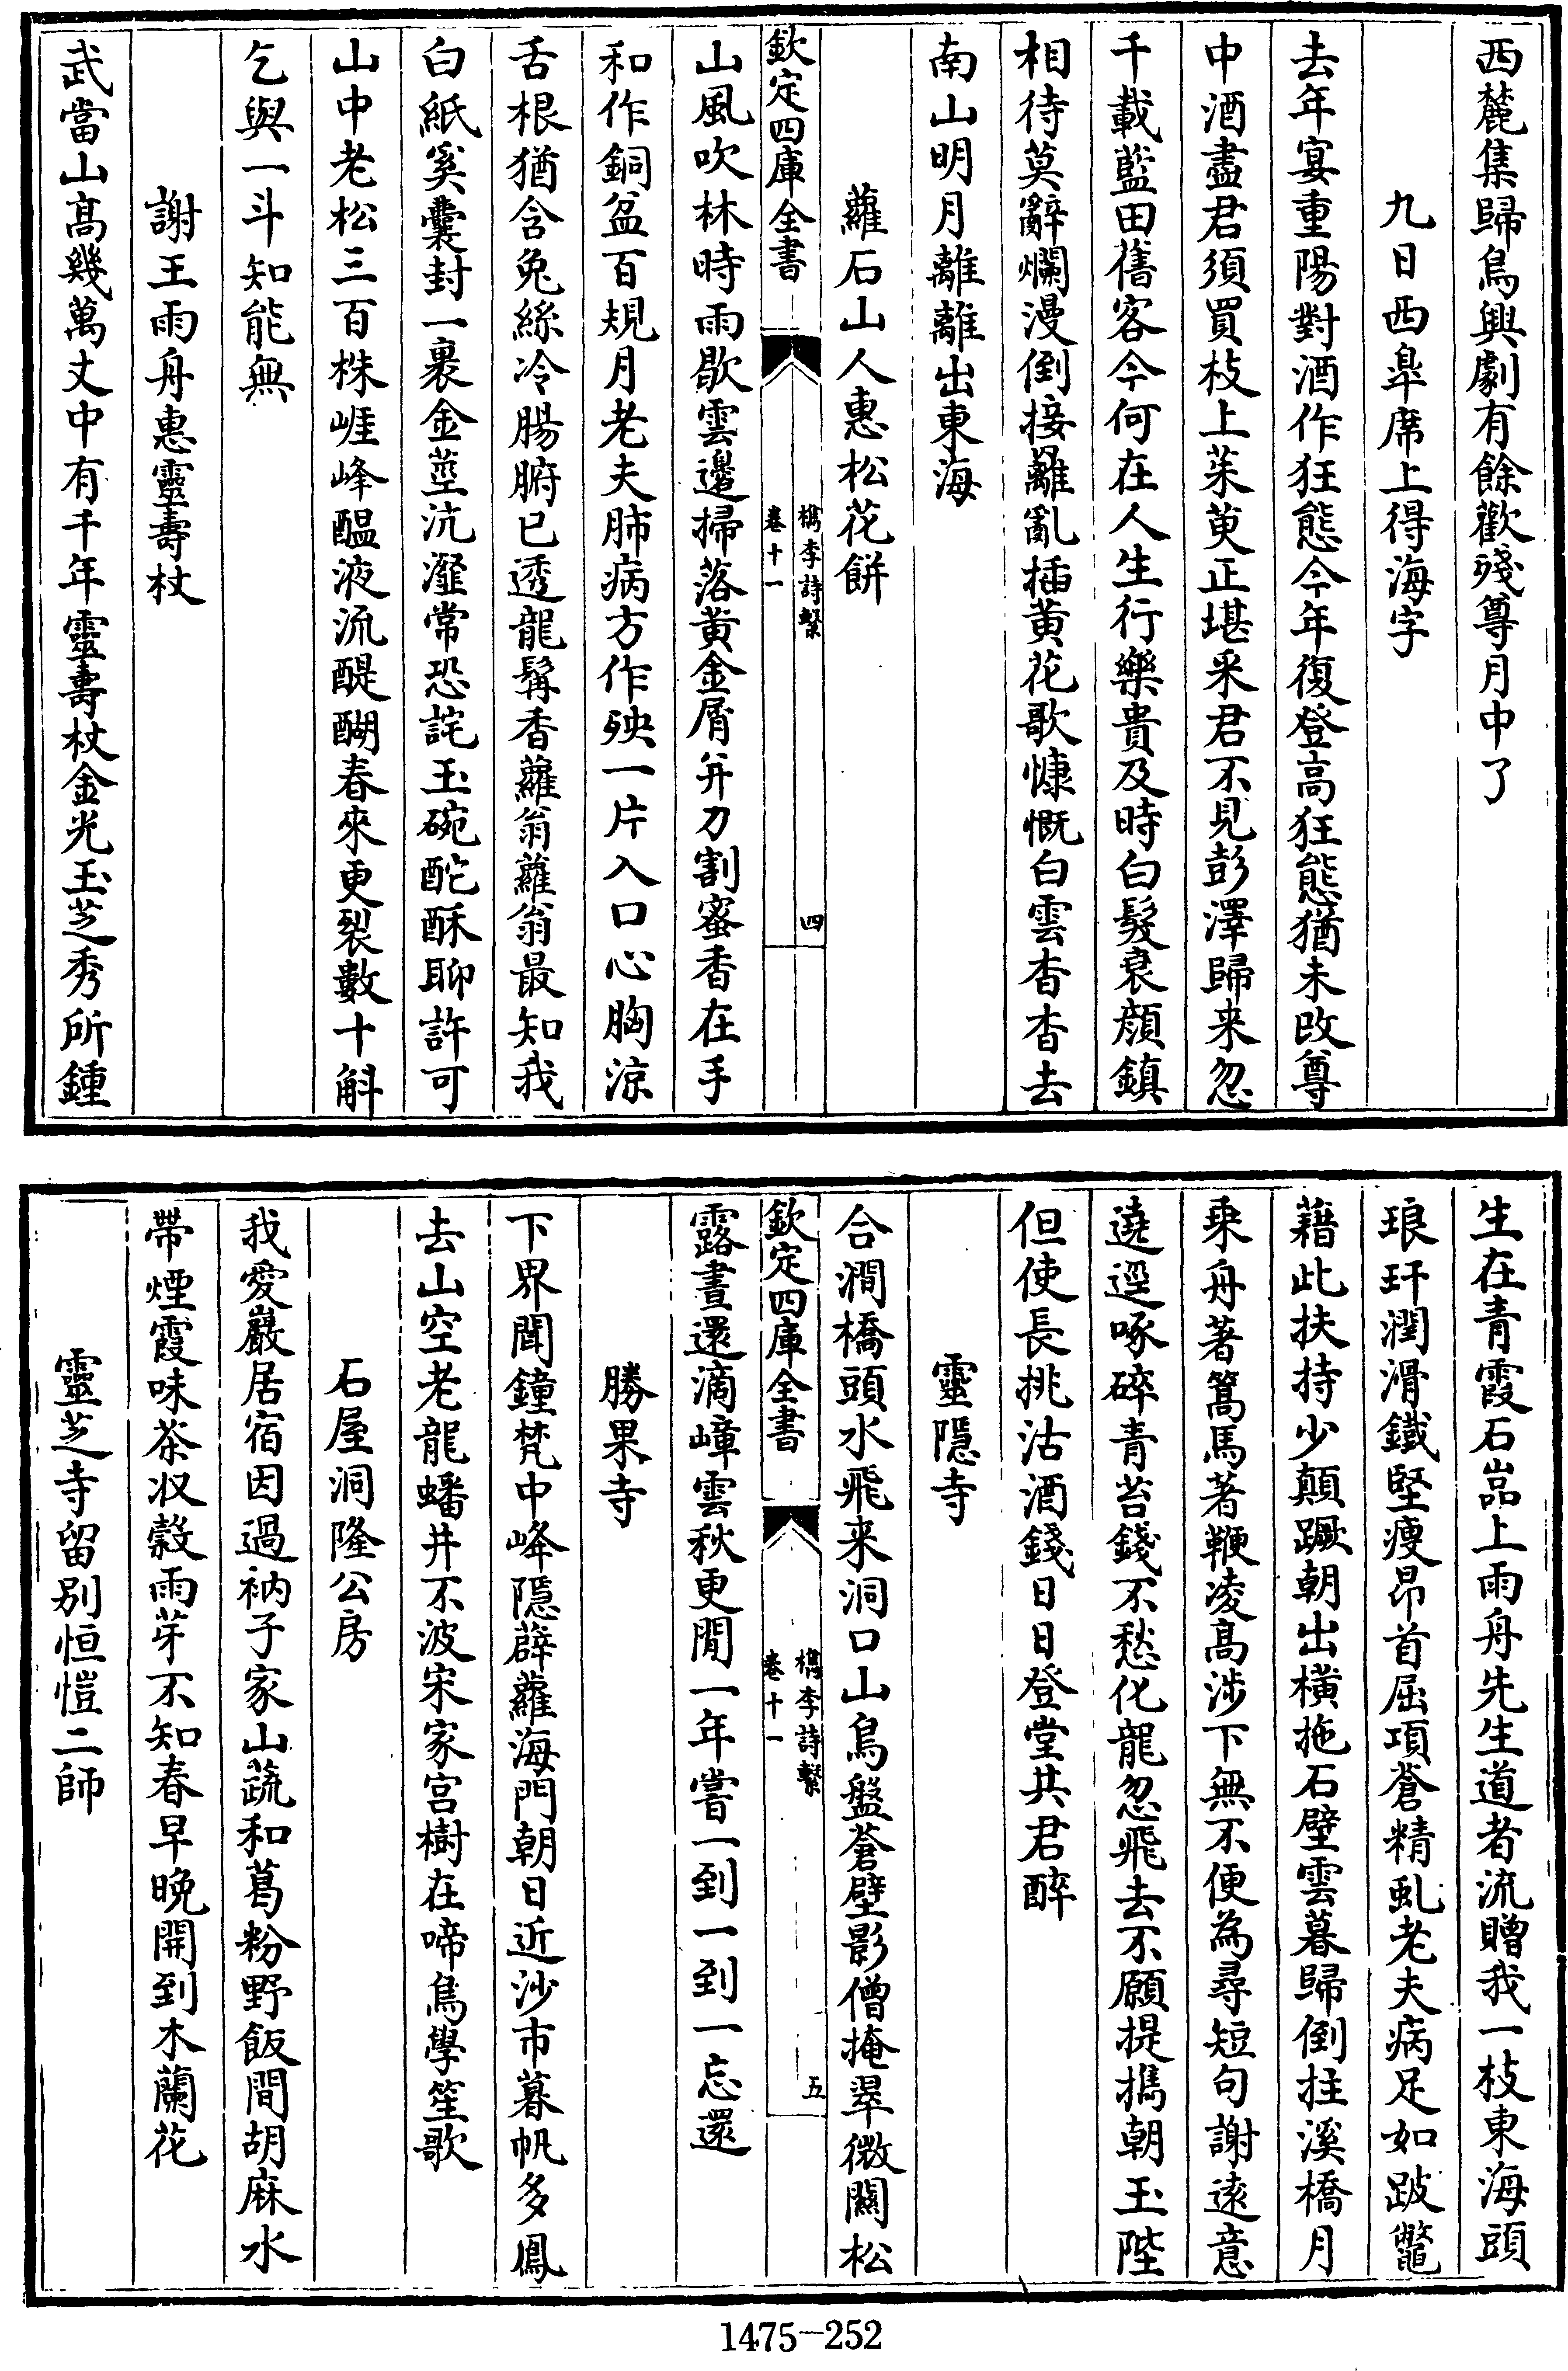 西麓集歸烏輿劇有餘歡殘尊月中了
九日西臯席上得海字
去年宴重陽對酒作狂態今年復登高狂態猶未改尊
中酒盡君須買枝上茱萸正堪采君不見彭澤歸来忽
千載藍田舊客今何在人生行樂貴及時白髮衰顔鎮
相待莫辭爛漫倒接䍦亂插黄花歌慷慨白雲杳杳去
南山明月離離出東海
蘿石山人惠松花餅
欽定四庫全書
檇李詩繫
卷十一
四
山風吹林時雨歇雲邊掃落黄金屑并刀割蜜香在手
和作銅盆百規月老夫肺病方作殃一片入口心胸涼
舌根猶含兔絲冷腸腑已透龍髯香蘿翁蘿翁最知我
白紙奚囊封一裹金莖沆瀣常恐詫玉碗酡酥聊許可
山中老松三百株崕峰醖液流醍醐春來更裂數十斛
乞與一斗知能無
謝王雨舟惠靈壽杖
武當山髙幾萬丈中有千年靈壽杖金光玉芝秀所鍾
生在青霞石嵓上雨舟先生道者流贈我一枝東海頭
琅玕潤滑鐵堅瘦昂首屈項蒼精虬老夫病足如跛鼈
藉此扶持少顛蹶朝出橫拖石壁雲暮歸倒拄溪橋月
乘舟著篙馬著鞭凌髙涉下無不便為尋短句謝遠意
遶逕啄碎青苔錢不愁化龍忽飛去不願提携朝玉陛
但使長挑沽酒錢日日登堂共君醉
靈隱寺
合澗橋頭水飛来洞口山鳥盤蒼壁影僧掩翠微關松
欽定四庫全書
檇李詩繫
卷十一
五
露晝還滴嶂雲秋更閒一年嘗一到一到一忘還
勝果寺
下界聞鐘梵中峰隱薜蘿海門朝日近沙市暮帆多鳳
去山空老龍蟠井不波宋家宫樹在啼鳥學笙歌
石屋洞隆公房
我愛巖居宿因過衲子家山蔬和葛粉野飯間胡麻水
帶煙霞味茶收榖雨芽不知春早晚開到木蘭花
靈芝寺留别恒愷二師
1475—252